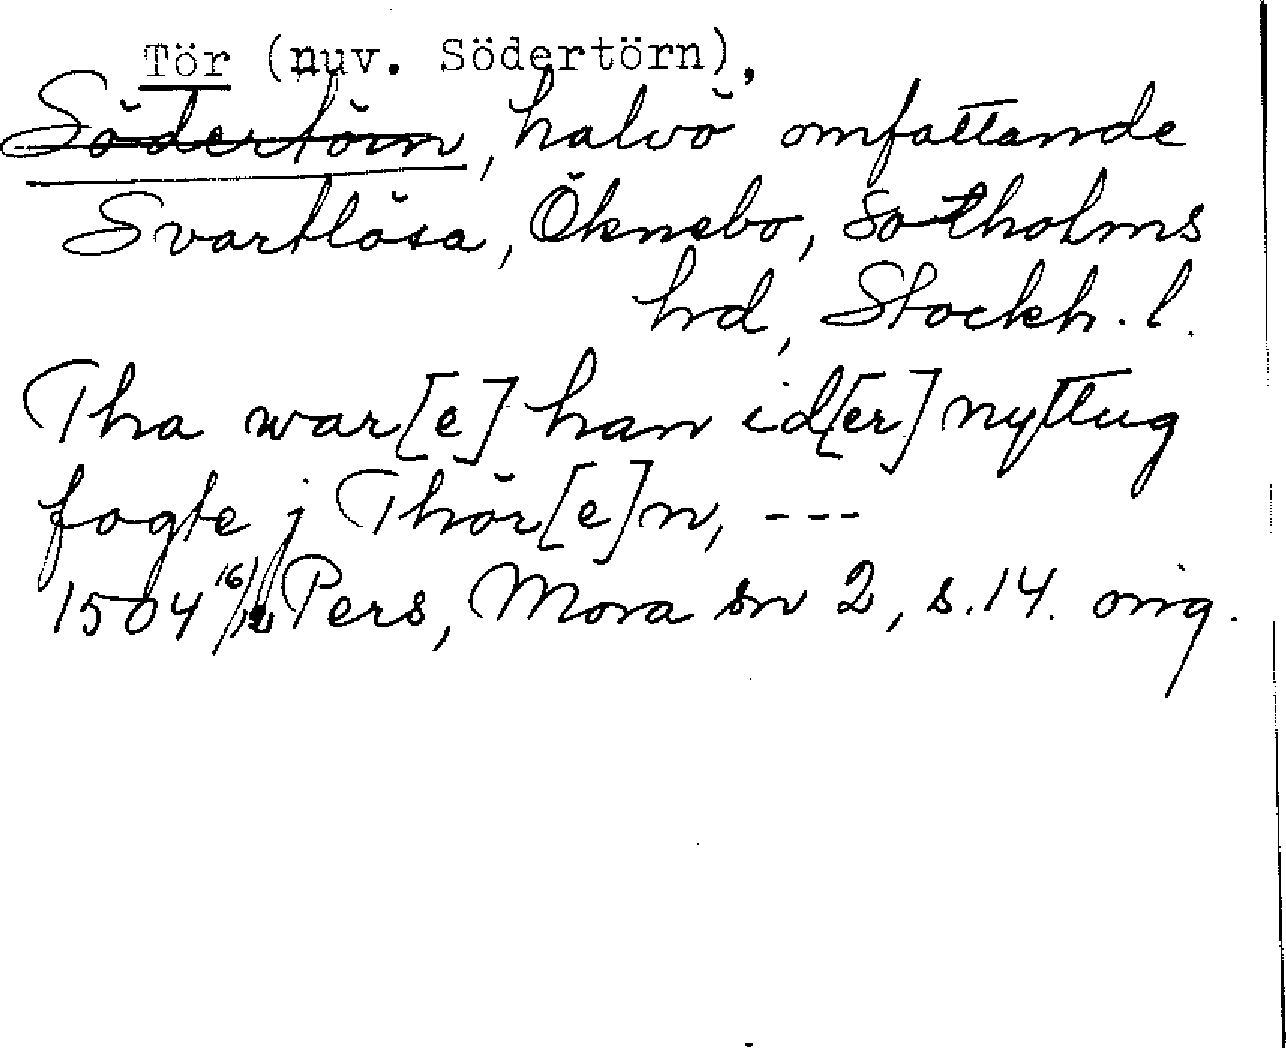 Tör (nuv. Södertörn),
Södertörn, halvö omfattande
Svartlösa, Öknebo, Sotholms
hrd, Stockh. l.
Tha war[e] han id[er] nyttug
fogte j Thör[e]n, ---
1504 16/12 Pers, Mora sn 2, s.14. orig.